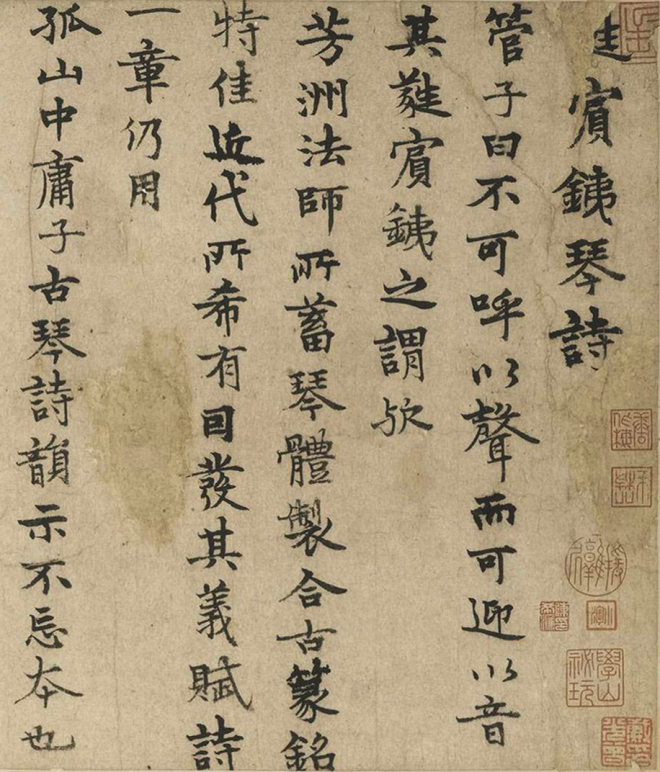 賓銕琴詩
管子曰不可呼以聲而可迎以音
其蕤賓銕之謂歟
芳洲法師所蓄琴體製合古篆銘
特佳近代所希有因發其義賦詩
一章仍用
孤山中庸子古琴詩韻示不忘本也